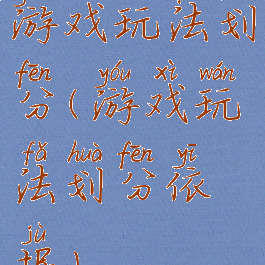 游戏玩法划
fēn yóu xì wán
分(游戏玩
fǎ huà fēn yī
法划分依
jù
据)